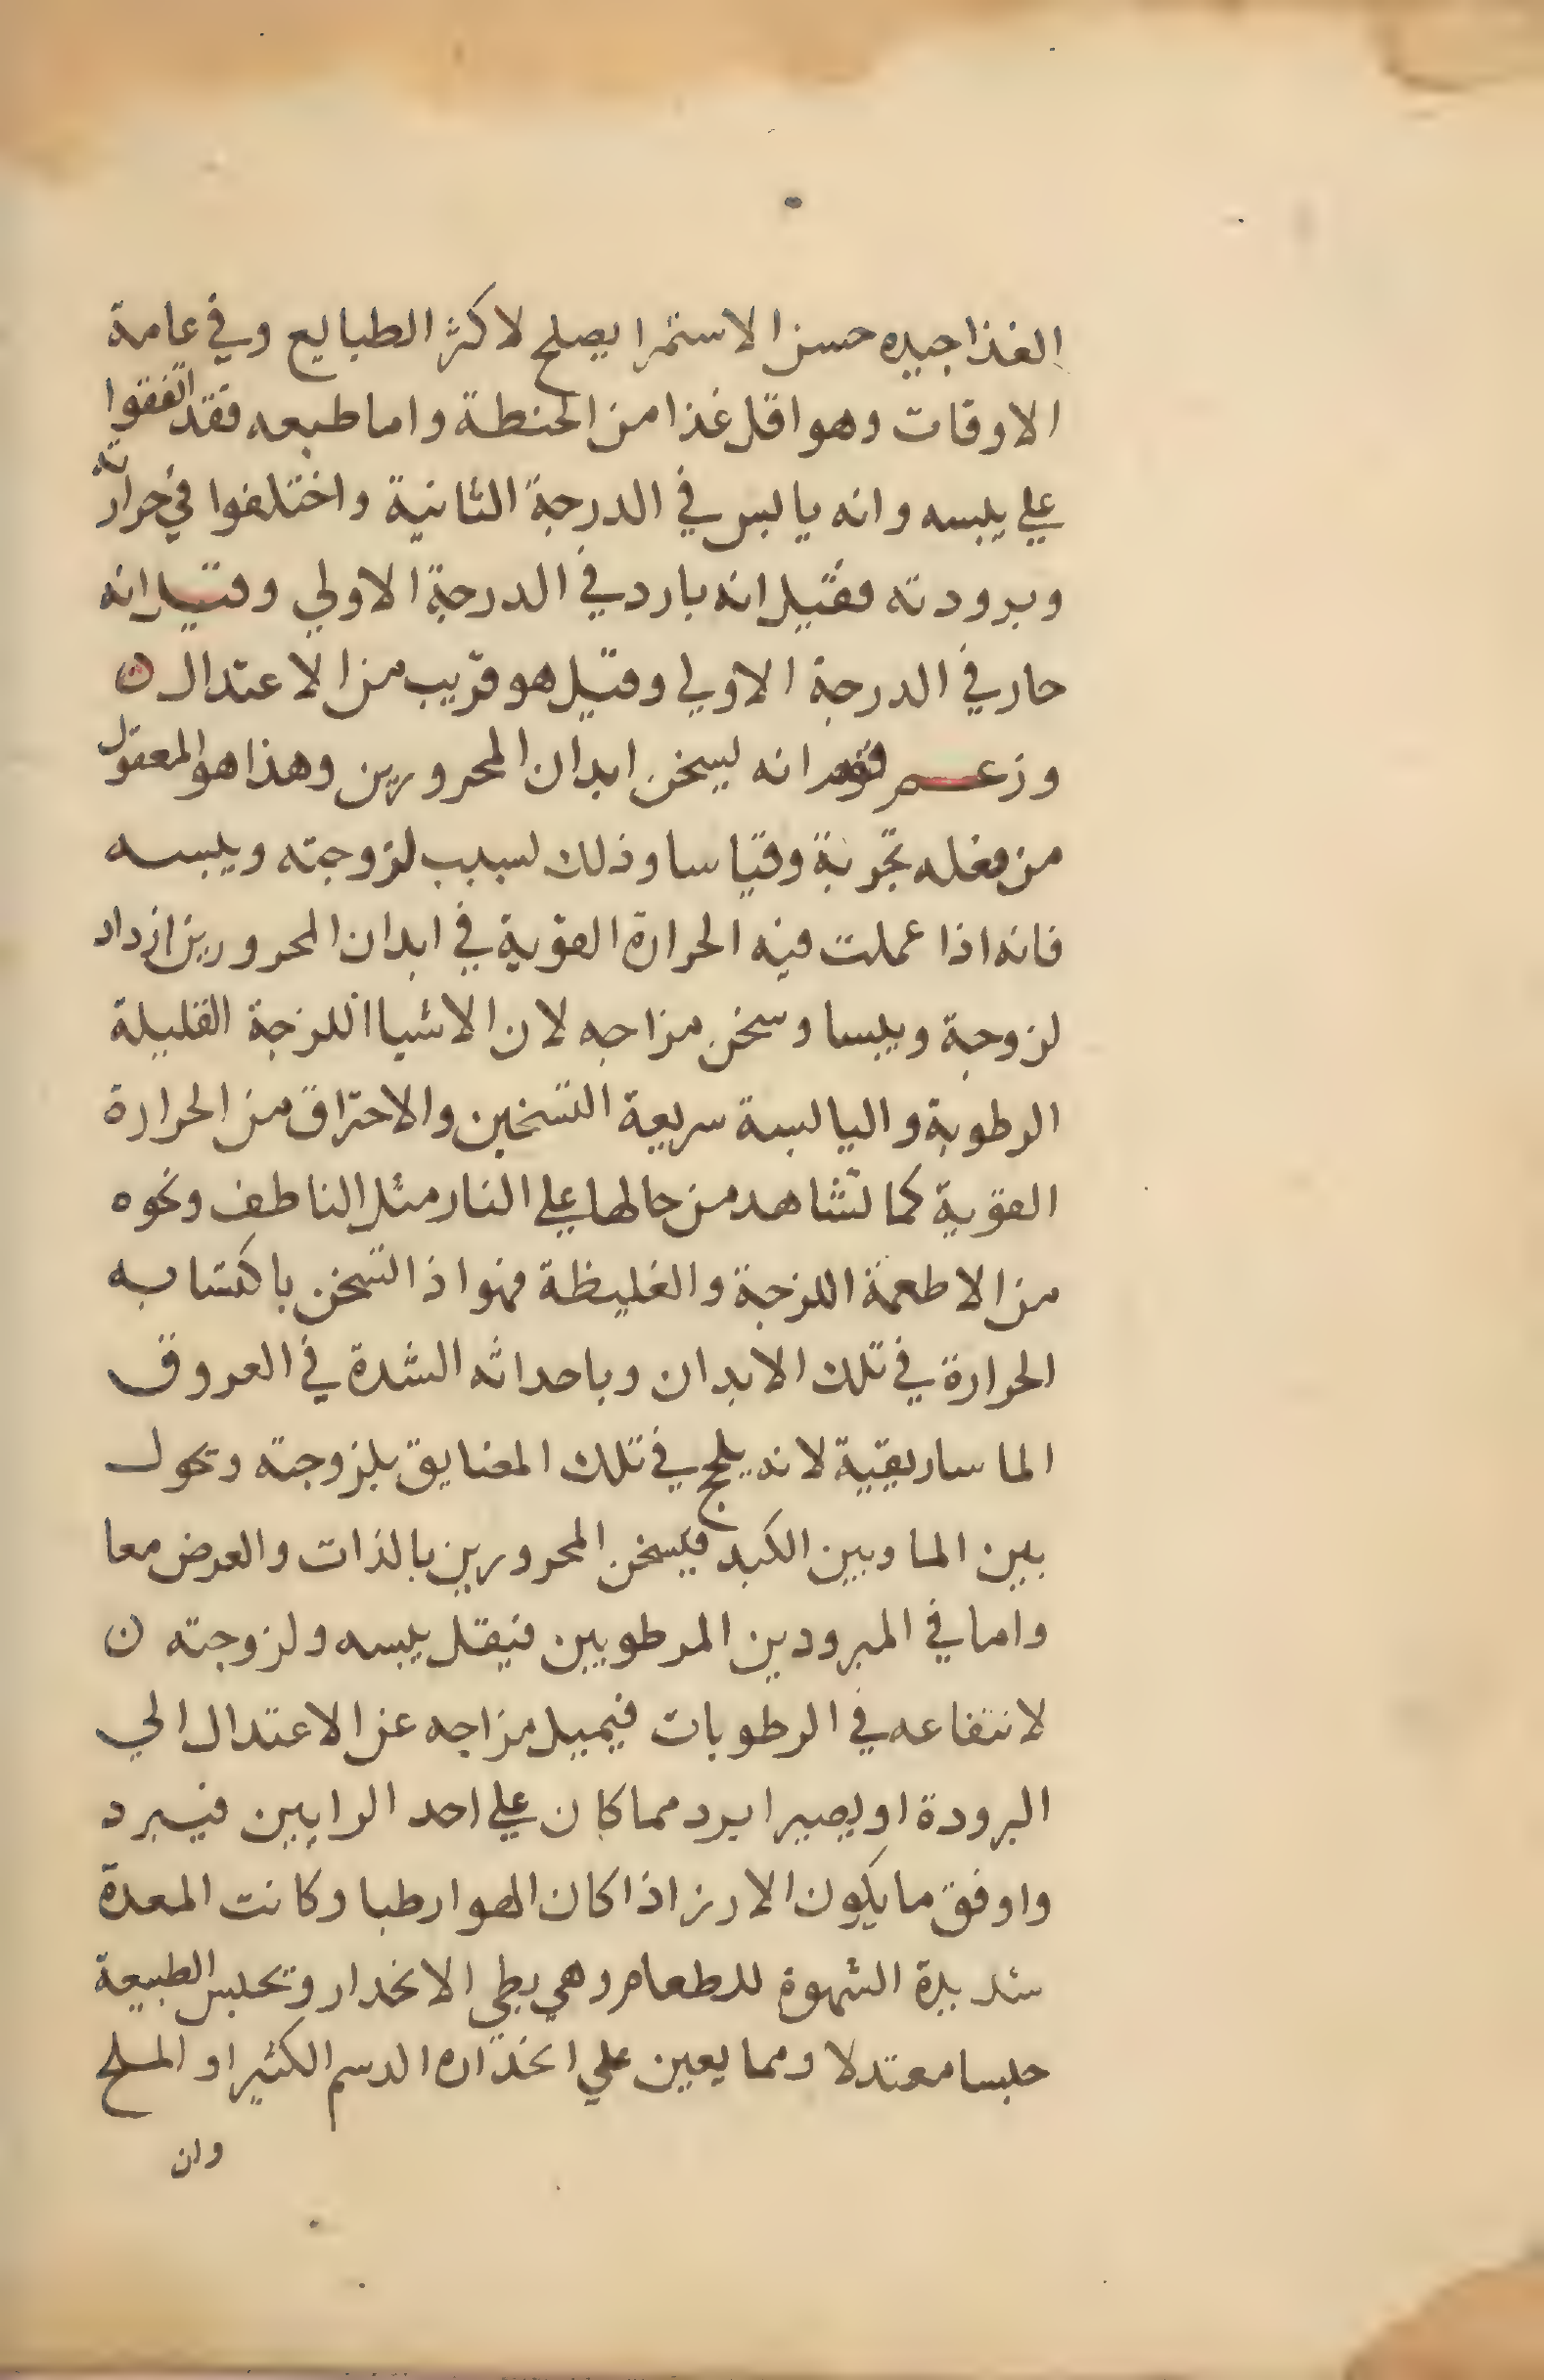 الغذا جيده حسن الاستمرا يصلح لاكثر الطبايع وفي عامة
الاوقات وهو اقل غذا من الحنطة واما طبعه فقد اتفقوا
علي يبسه وانه يابس في الدرجة الثانية واختلفوا في حرارته
وبرودته فقيل انه بارد في الدرجة الاولي وقيل انه
حار في الدرجة الاولي وقيل هو قريب من الاعتدال ن
وزعم قوم انه يسخن ابدان المحرورين وهذا هو المعقول
من فعله تجربة وقياسا وذلك بسبب لزوجته ويبسه
فانه اذا عملت فيه الحرارة القوية في ابدان المحرورين ازداد
لزوجة ويبسا وسخن مزاجه لان الاشيا اللزجة القليلة
الرطوبة واليابسة سريعة التسخين والاحتراق من الحرارة
القوية كما تشاهد من حالها علي النار مثل الناطف ونحوه
من الاطعمة اللزجة والغليظة فهو اذا تسخن باكتسابه
الحرارة في تلك الابدان وباحداثه الشدة في العروق
الماساريقية لانه يلحج في تلك المضايق بلزوجته وتحول
بين الما وبين الكبد فيسخن المحرورين بالذات والعرض معا
واما في المبرودين المرطوبين فيقل يبسه ولزوجته ن
لانتفاعه في الرطوبات فيميل مزاجه عن الاعتدال الي
البرودة او يصير ابرد مما كان علي احد الرايين فيبرد
واوفق ما يكون الارز اذا كان الهوا رطبا وكانت المعدة
شديدة الشهوة للطعام وهي بطي الانحدار وتحبس الطبيعة
حبسا معتدلا ومما يعين علي انحذاره الدسم الكثير او الملح
وان